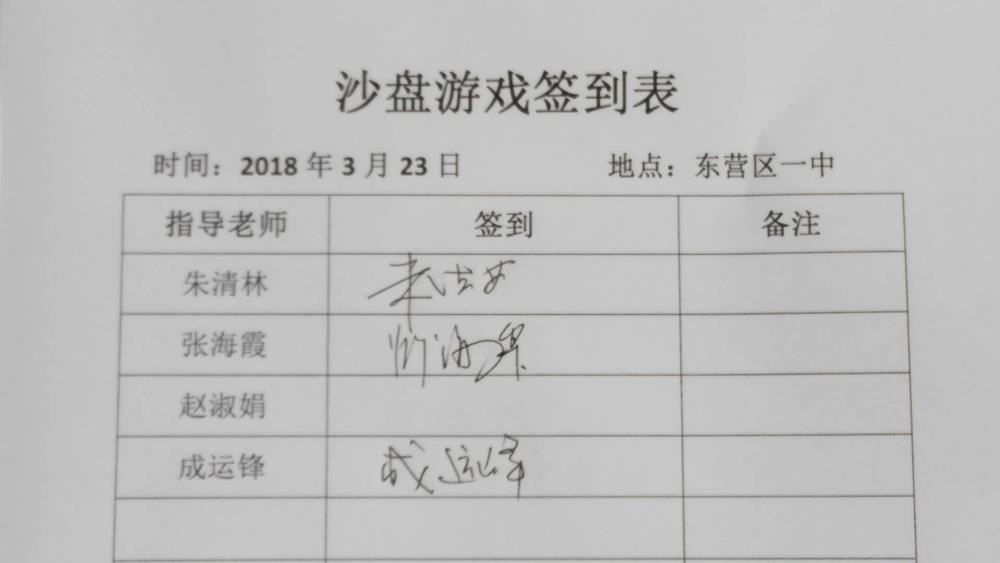 沙盘游戏签到表
时间：2018 年 3 月 23 日 地点：东营区一中
指导老师 签到 备注
朱清林
张海霞
赵淑娟
成运锋 成运峰